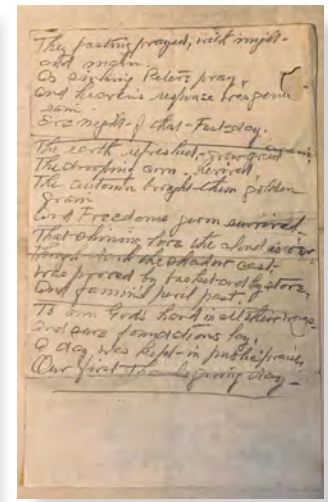 They fasting prayed, with might
and main.
As sinking Peters pray,
And heaven's response began
rain
Ere night of that Fast-day.
The earth refreshed grew green again,
The drooping corn revived,
The autumn bright them golden
grain
And Freedoms germ survived.
That shining love the cloud is o'er
the shadow cast.
Was proved by basket and by store,
And famine peril past.
To own Gods hand in all their ways
And sure foundations lay,
A day was kept in public praise,
Our first Thanksgiving day